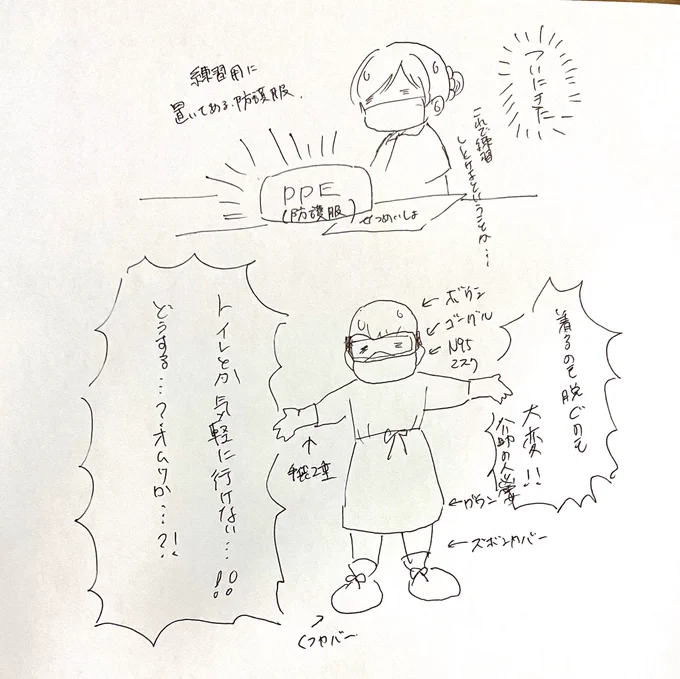 練習用に
置いてある防護服.
ついにきたー
これで練習
しとけよということか…
PPE
(防護服)
せつめいしょ
← ゴーグル
← N95
マスク
着るのも脱ぐのも
大変!!
介助の人必要
トイレとか気軽に行けない…!!
どうする…?オムツか…?!
↑
手袋2重
←ガウン
←ズボンカバー
↗
くつカバー